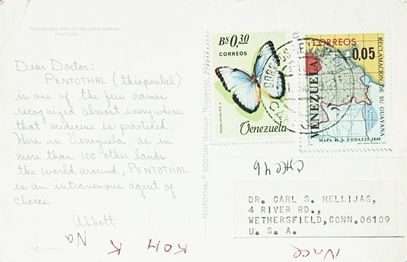 Dear Doctor:
PENTOTHAL (thiopental)
is one of the few names
recognized almost everywhere
that medicine is practiced.
Here in Venezuela, as in
more than 100 other lands
the world around, PENTOTHAL
is an intravenous agent of
choice.
Abbott
Bs 0,30
CORREOS
Venezuela
CORREOS
0,05
VENEZUELA
RECLAMACION DE SU GUAYANA
MAPA DE A. CODAZZI 1840
PENTOTHAL® SODIUM
DR. CARL S. HELLIJAS,
4 RIVER RD.,
WETHERSFIELD, CONN. 06109
U. S. A.
Na
KOH K